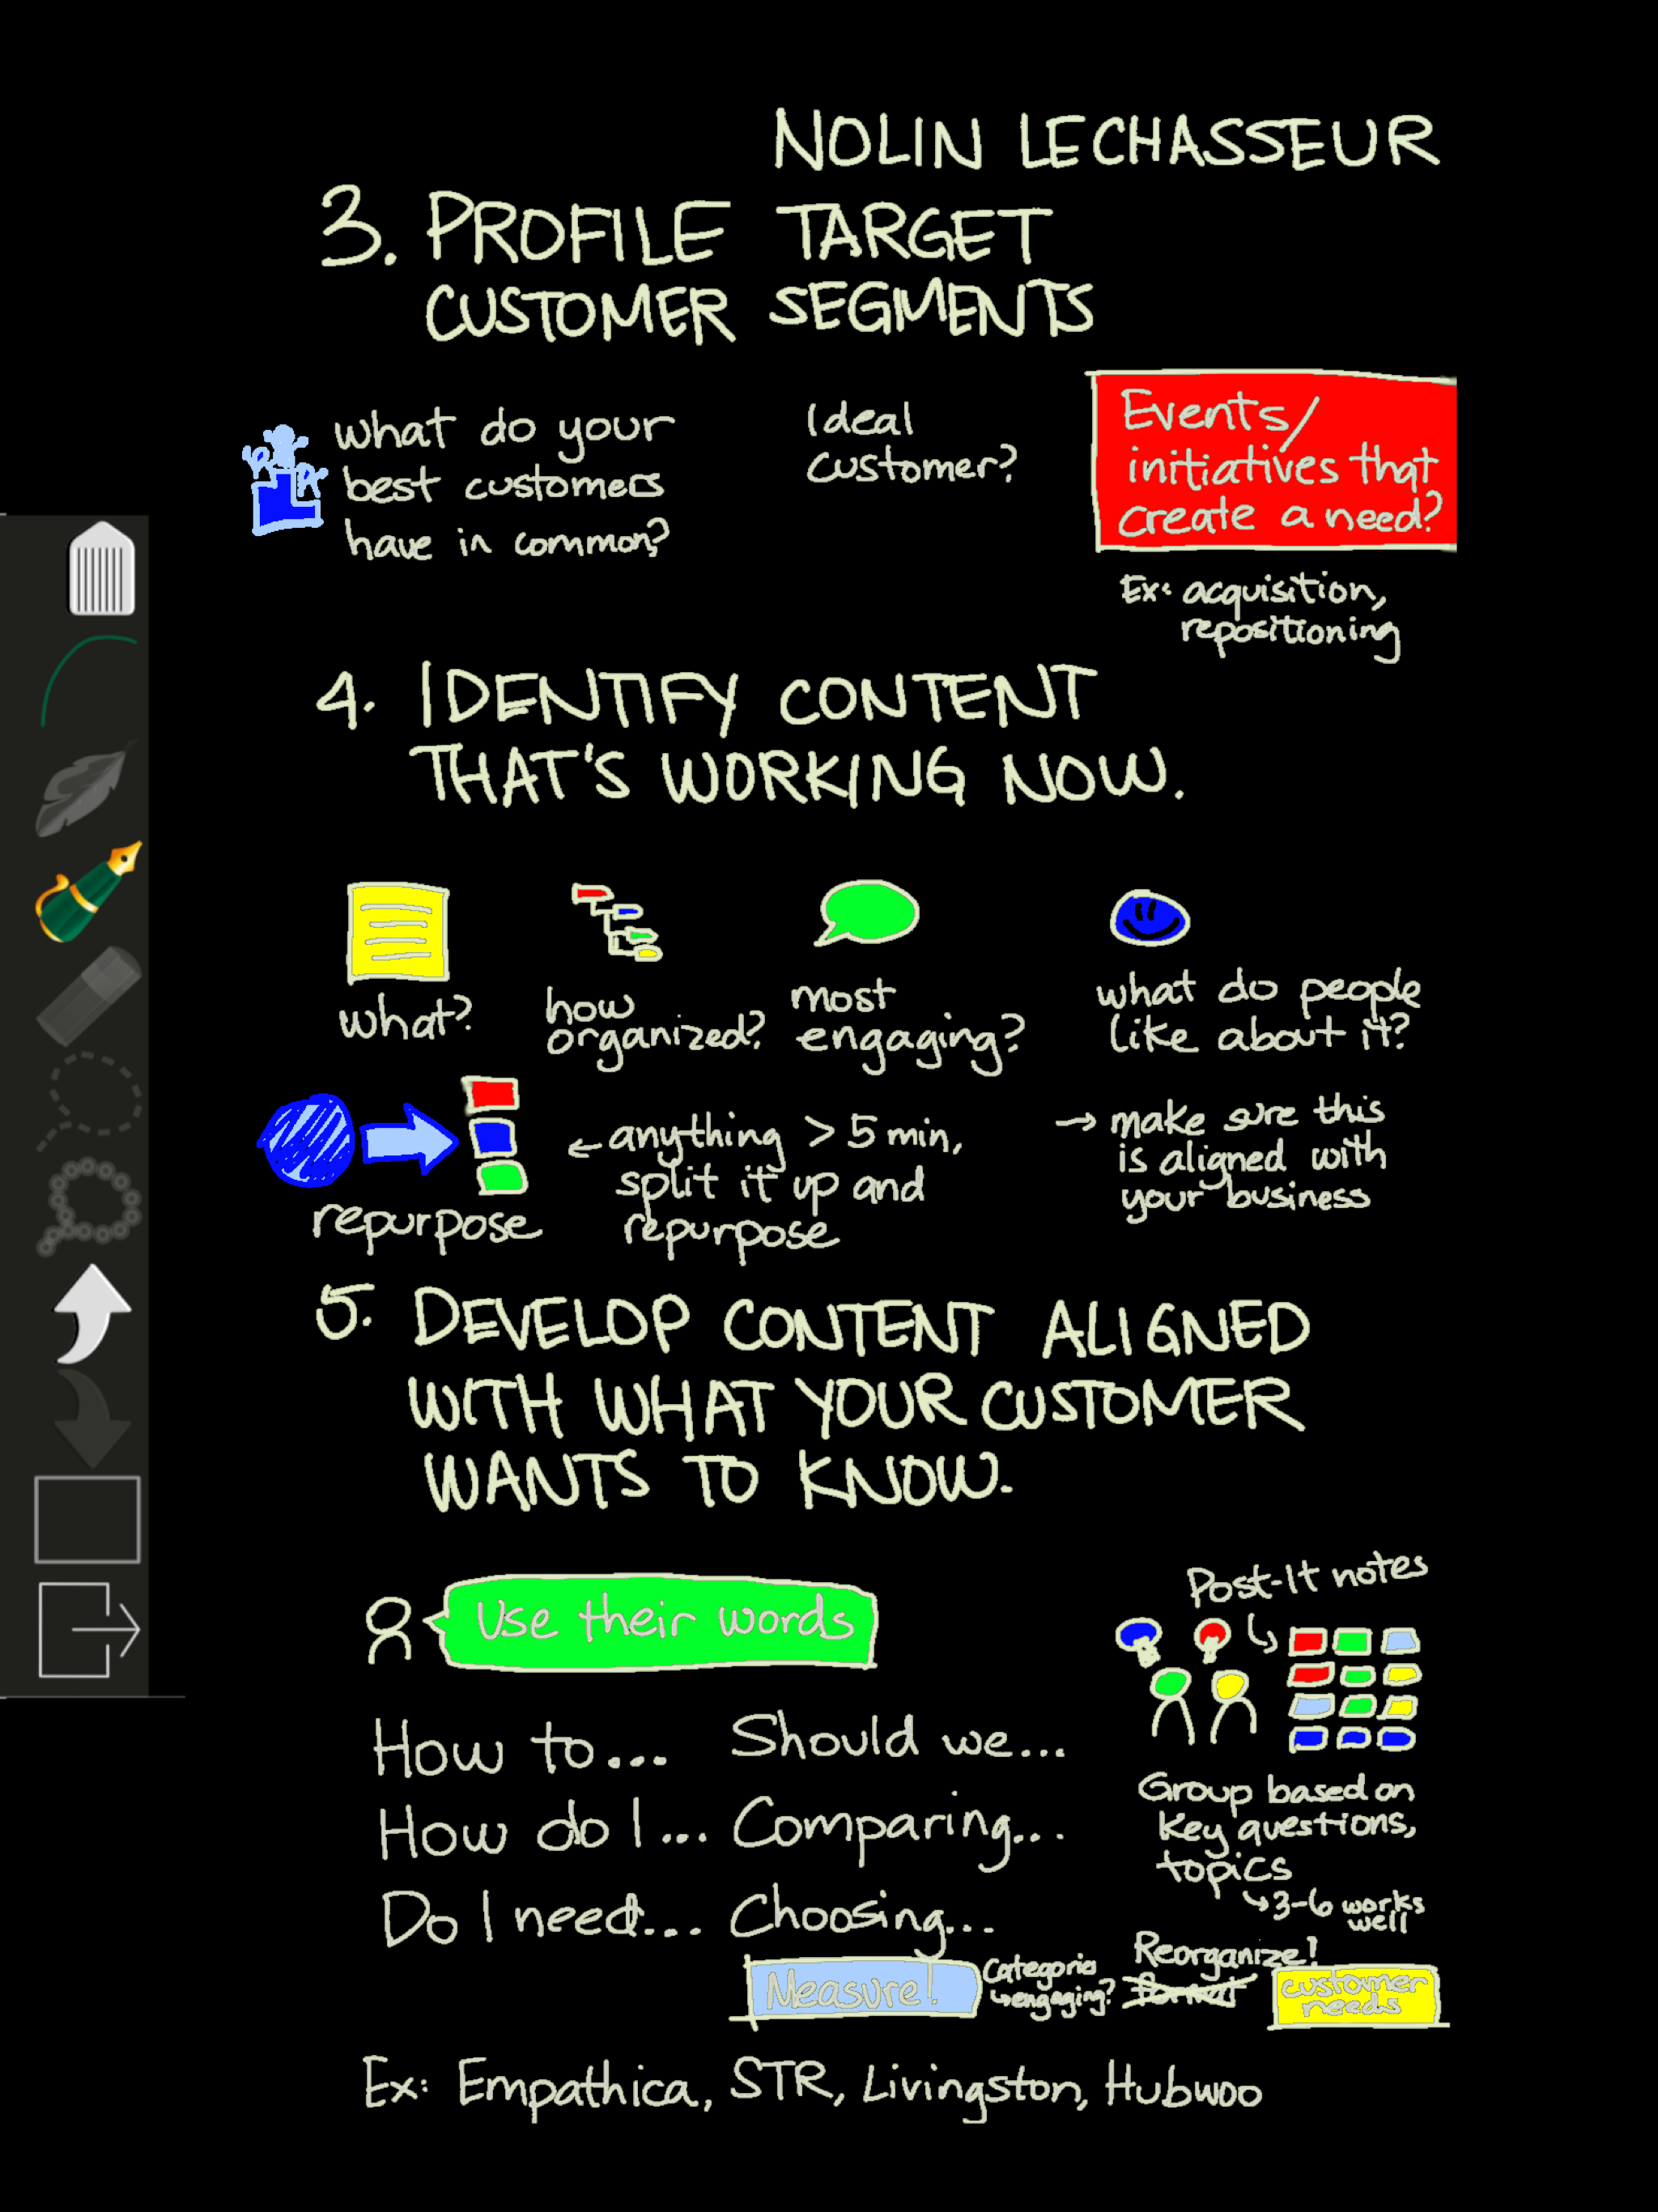 NOLIN LECHASSEUR
3. PROFILE TARGET
CUSTOMER SEGMENTS
what do your
best customers
have in common?
Ideal
customer?
Events/
initiatives that
create a need?
Ex: acquisition,
repositioning
4. IDENTIFY CONTENT
THAT'S WORKING NOW.
what?
how
organized?
most
engaging?
what do people
like about it?
repurpose
← anything > 5 min,
split it up and
repurpose
→ make sure this
is aligned with
your business
5. DEVELOP CONTENT ALIGNED
WITH WHAT YOUR CUSTOMER
WANTS TO KNOW.
Use their words
How to...
How do I...
Do I need...
Should we...
Comparing...
Choosing...
Post-It notes
Group based on
key questions,
topics
↳ 3-6 works
well
Measure!
↳ engaging?
Reorganize!
customer
needs
Ex: Empathica, STR, Livingston, Hubwoo